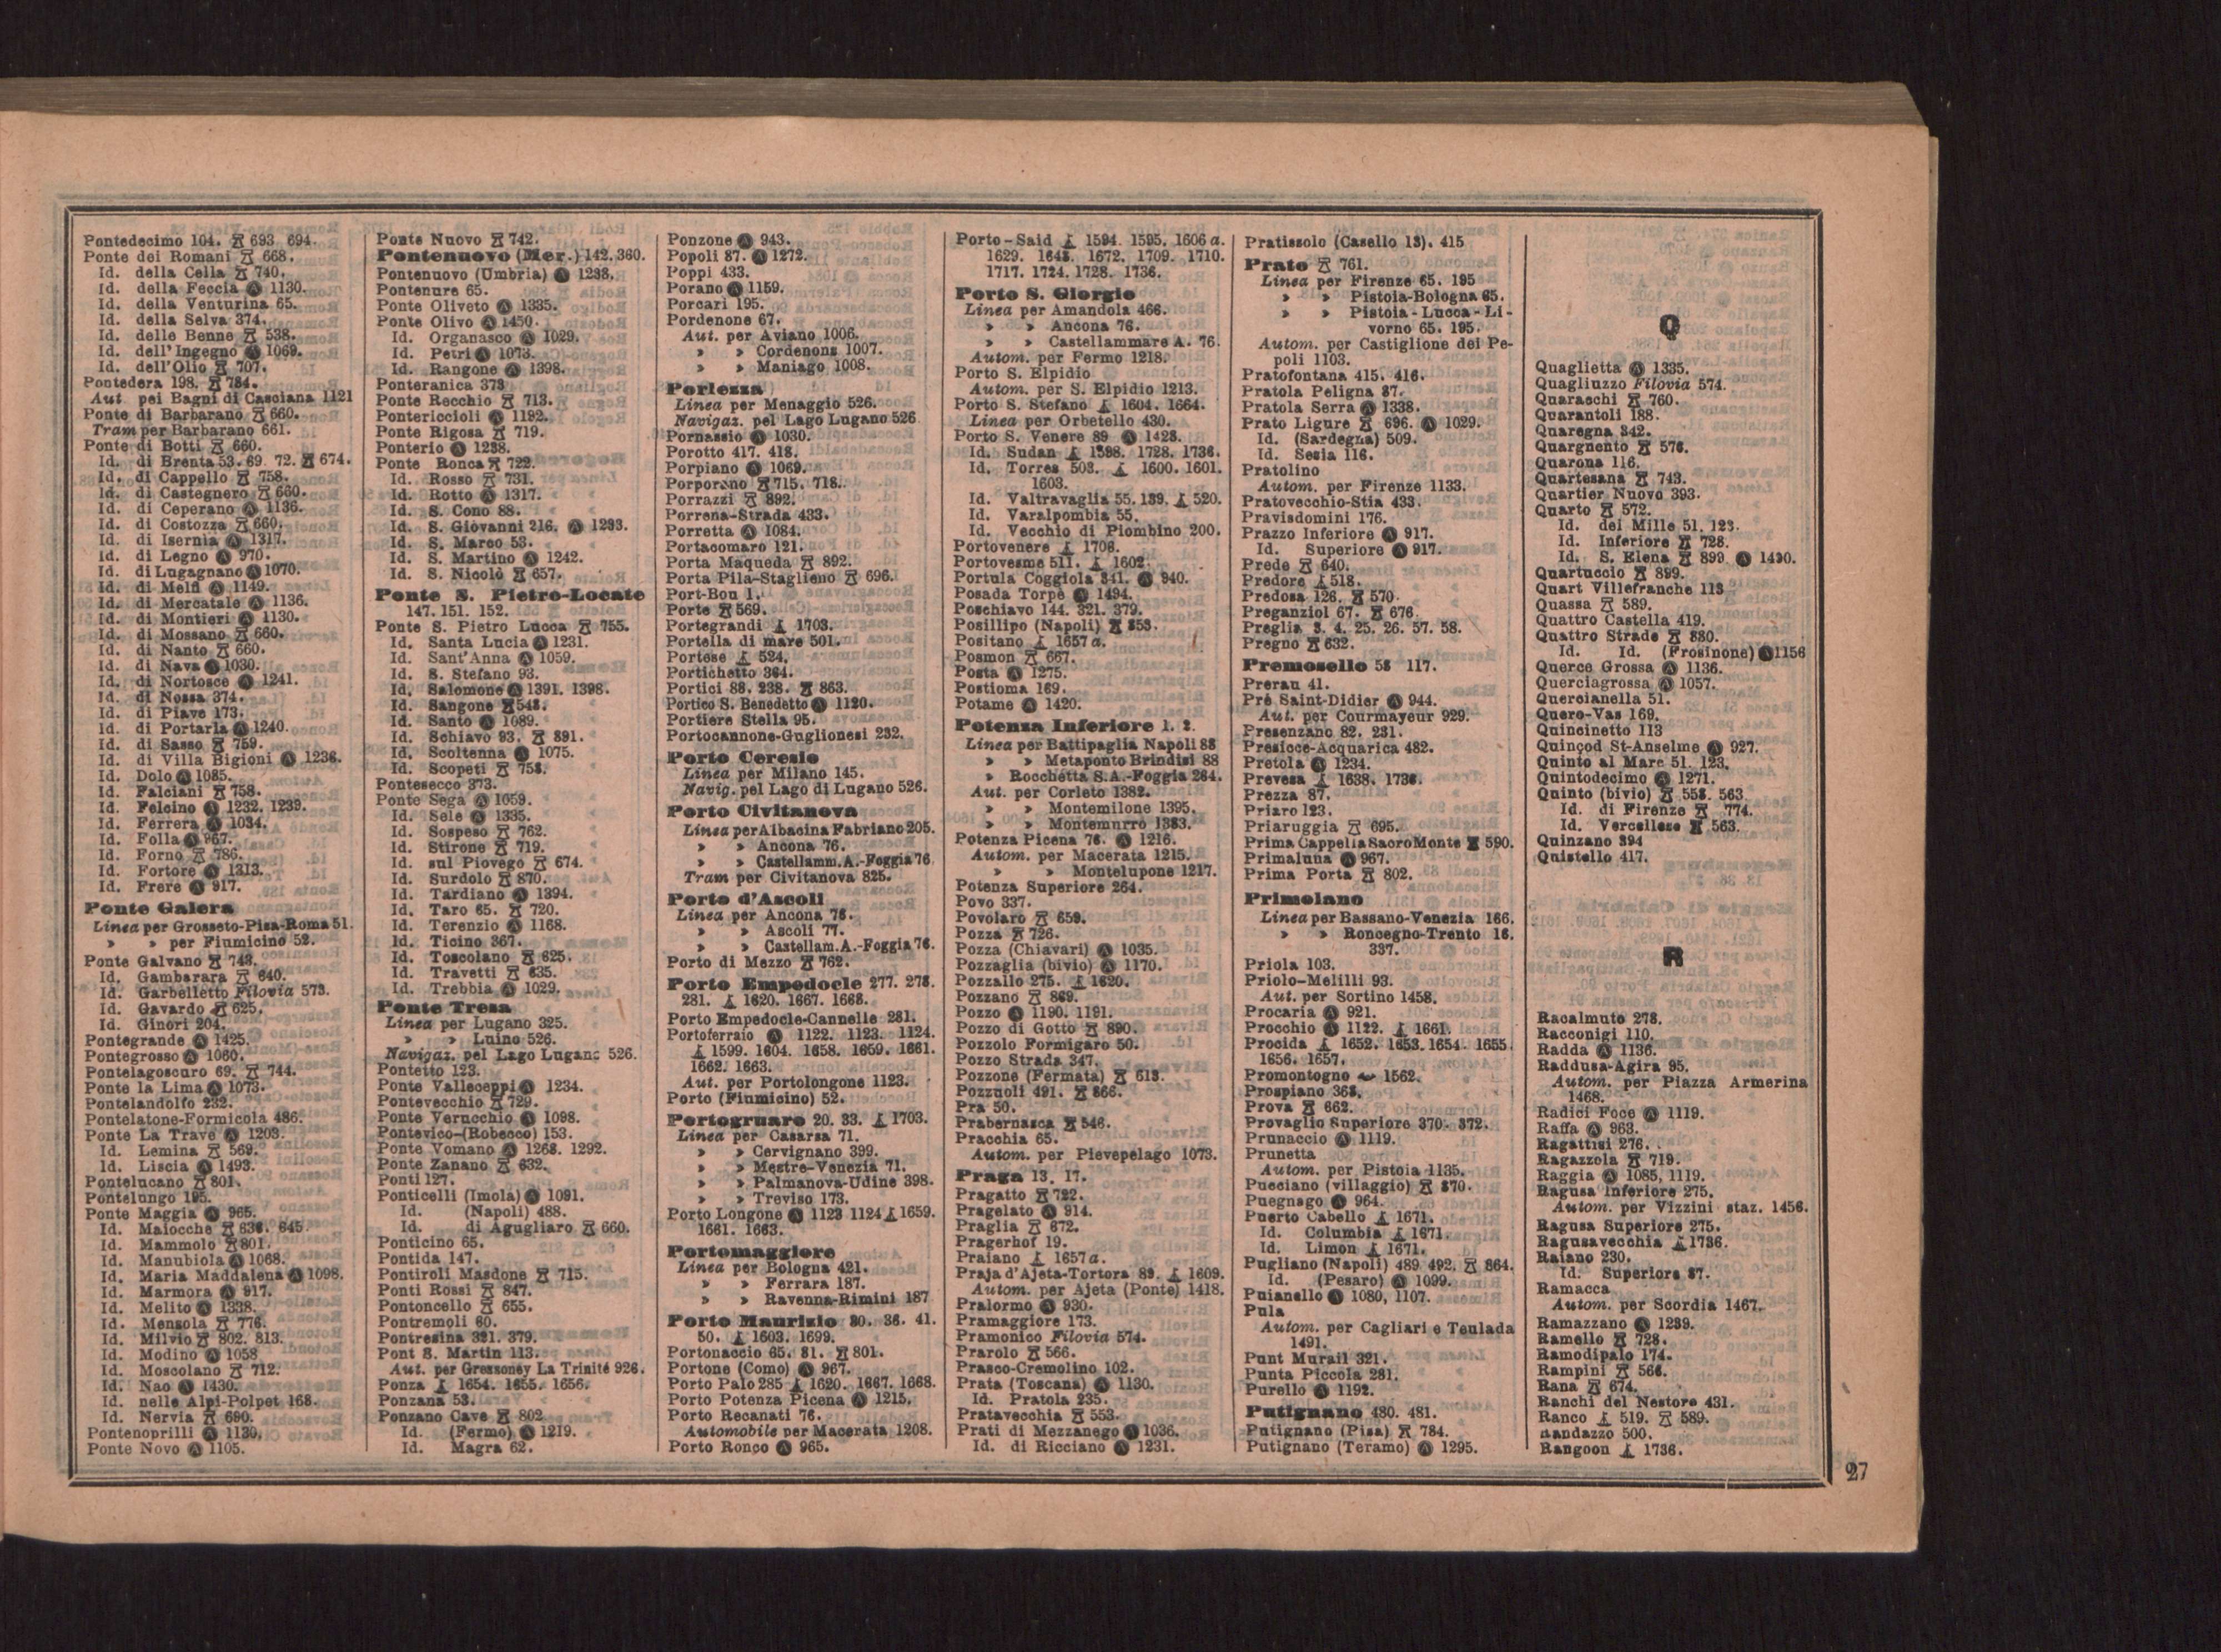 Pontedecimo 104. 693 694.
Ponte dei Romani 668.
Id. della Cella 740.
Id. della Feccia Ⓐ 1130.
Id. della Venturina 65.
Id. della Selva 374.
Id. delle Benne 538.
Id. dell'Ingegno Ⓐ 1069.
Id. dell'Olio 707.
Pontedera 198. 784.
Aut pei Bagni di Casciana 1121
Ponte di Barbarano 660.
Tram per Barbarano 661.
Ponte di Botti 660.
Id. di Brenta 53. 69. 72. 674.
Id. di Cappello 758.
Id. di Castegnero 660.
Id. di Ceperano Ⓐ 1136.
Id. di Costozza 660.
Id. di Isernia Ⓐ 1317.
Id. di Legno Ⓐ 970.
Id. di Lugagnano Ⓐ 1070.
Id. di Melfi Ⓐ 1149.
Id. di Mercatale Ⓐ 1136.
Id. di Montieri Ⓐ 1130.
Id. di Mossano 660.
Id. di Nanto 660.
Id. di Nava Ⓐ 1030.
Id. di Nortosce Ⓐ 1241.
Id. di Nossa 374.
Id. di Piave 173.
Id. di Portaria Ⓐ 1240.
Id. di Sasso 759.
Id. di Villa Bigioni Ⓐ 1236.
Id. Dolo Ⓐ 1085.
Id. Falciani 758.
Id. Felcino Ⓐ 1232. 1239.
Id. Ferrera Ⓐ 1034.
Id. Folla Ⓐ 967.
Id. Forno 786.
Id. Fortore Ⓐ 1313.
Id. Frere Ⓐ 917.
Ponte Galera
Linea per Grosseto-Pisa-Roma 51.
» » per Fiumicino 52.
Ponte Galvano 743.
Id. Gambarara 640.
Id. Garbelletto Filovia 573.
Id. Gavardo 625.
Id. Ginori 204.
Pontegrande Ⓐ 1425.
Pontegrosso Ⓐ 1060.
Pontelagoscuro 69. 744.
Ponte la Lima Ⓐ 1073.
Pontelandolfo 232.
Pontelatone-Formicola 486.
Ponte La Trave Ⓐ 1203.
Id. Lemina 569.
Id. Liscia Ⓐ 1493.
Pontelucano 801.
Pontelungo 195.
Ponte Maggia Ⓐ 965.
Id. Maiocche 636. 645.
Id. Mammolo 801.
Id. Manubiola Ⓐ 1068.
Id. Maria Maddalena Ⓐ 1098.
Id. Marmora Ⓐ 917.
Id. Melito Ⓐ 1338.
Id. Mensola 776.
Id. Milvio 802. 813.
Id. Modino Ⓐ 1058
Id. Moscolano 712.
Id. Nao Ⓐ 1430.
Id. nelle Alpi-Polpet 168.
Id. Nervia 690.
Pontenoprilli Ⓐ 1130.
Ponte Novo Ⓐ 1105.
Ponte Nuovo 742.
Pontenuovo (Mer.) 142. 360.
Pontenuovo (Umbria) Ⓐ 1238.
Pontenure 65.
Ponte Oliveto Ⓐ 1335.
Ponte Olivo Ⓐ 1450.
Id. Organasco Ⓐ 1029.
Id. Petri Ⓐ 1073.
Id. Rangone Ⓐ 1398.
Ponteranica 373
Ponte Recchio 713.
Pontericcioli Ⓐ 1192.
Ponte Rigosa 719.
Ponterio Ⓐ 1238.
Ponte Ronca 722.
Id. Rosso 731.
Id. Rotto Ⓐ 1317.
Id. S. Cono 88.
Id. S. Giovanni 216. Ⓐ 1293.
Id. S. Marco 53.
Id. S. Martino Ⓐ 1242.
Id. S. Nicolò 657.
Ponte S. Pietro-Locate
147. 151. 152.
Ponte S. Pietro Lucca 755.
Id. Santa Lucia Ⓐ 1231.
Id. Sant'Anna Ⓐ 1059.
Id. S. Stefano 93.
Id. Salomone Ⓐ 1391. 1398.
Id. Sangone 548.
Id. Santo Ⓐ 1089.
Id. Schiavo 93. 891.
Id. Scoltenna Ⓐ 1075.
Id. Scopeti 758.
Pontesecco 373.
Ponte Sega Ⓐ 1059.
Id. Sele Ⓐ 1335.
Id. Sospeso 762.
Id. Stirone 719.
Id. sul Piovego 674.
Id. Surdolo 870.
Id. Tardiano Ⓐ 1394.
Id. Taro 65. 720.
Id. Terenzio Ⓐ 1168.
Id. Ticino 367.
Id. Toscolano 625.
Id. Travetti 635.
Id. Trebbia Ⓐ 1029.
Ponte Tresa
Linea per Lugano 325.
» » Luino 526.
Navigaz. pel Lago Lugano 526.
Pontetto 123.
Ponte Valleceppi Ⓐ 1234.
Pontevecchio 729.
Ponte Verucchio Ⓐ 1098.
Pontevico-(Robecco) 153.
Ponte Vomano Ⓐ 1268. 1292.
Ponte Zanano 632.
Ponti 127.
Ponticelli (Imola) Ⓐ 1091.
Id. (Napoli) 488.
Id. di Agugliaro 660.
Ponticino 65.
Pontida 147.
Pontiroli Masdone 715.
Ponti Rossi 847.
Pontoncello 655.
Pontremoli 60.
Pontresina 321. 379.
Pont S. Martin 113.
Aut. per Gressoney La Trinité 926.
Ponza 1654. 1655. 1656.
Ponzana 53.
Ponzano Cave 802
Id. (Fermo) Ⓐ 1219.
Id. Magra 62.
Ponzone Ⓐ 943.
Popoli 87. Ⓐ 1272.
Poppi 433.
Porano Ⓐ 1159.
Porcari 195.
Pordenone 67.
Aut. per Aviano 1006.
» » Cordenons 1007.
» » Maniago 1008.
Porlezza
Linea per Menaggio 526.
Navigaz. pel Lago Lugano 526
Pornassio Ⓐ 1030.
Porotto 417. 418.
Porpiano Ⓐ 1069.
Porporano 715. 718.
Porrazzi 892.
Porrena-Strada 433.
Porretta Ⓐ 1084.
Portacomaro 121.
Porta Maqueda 892.
Porta Pila-Staglieno 696.
Port-Bou 1.
Porte 569.
Portegrandi 1703.
Portella di mare 501.
Portese 524.
Portichetto 364.
Portici 88. 238. 863.
Portico S. Benedetto Ⓐ 1120.
Portiere Stella 95.
Portocannone-Guglionesi 232.
Porto Ceresio
Linea per Milano 145.
Navig. pel Lago di Lugano 526.
Porto Civitanova
Linea per Albacina Fabriano 205.
» » Ancona 76.
» » Castellamm. A.-Foggia 76
Tram per Civitanova 825.
Porto d'Ascoli
Linea per Ancona 76.
» » Ascoli 77.
» » Castellam. A.-Foggia 76.
Porto di Mezzo 762.
Porto Empedocle 277. 278.
281. 1620. 1667. 1668.
Porto Empedocle-Cannelle 281.
Portoferraio Ⓐ 1122. 1123. 1124.
1599. 1604. 1658. 1659. 1661.
1662. 1663.
Aut. per Portolongone 1123.
Porto (Fiumicino) 52.
Portogruaro 20. 33. 1703.
Linea per Casarsa 71.
» » Cervignano 399.
» » Mestre-Venezia 71.
» » Palmanova-Udine 398.
» » Treviso 173.
Porto Longone Ⓐ 1123 1124 1659.
1661. 1663.
Portomaggiore
Linea per Bologna 421.
» » Ferrara 187.
» » Ravenna-Rimini 187
Porto Maurizio 30. 36. 41.
50. 1603. 1699.
Portonaccio 65. 81. 801.
Portone (Como) Ⓐ 967.
Porto Palo 285 1620. 1667. 1668.
Porto Potenza Picena Ⓐ 1215.
Porto Recanati 76.
Automobile per Macerata 1208.
Porto Ronco Ⓐ 965.
Porto-Said 1594. 1595. 1606 a.
1629. 1648. 1672. 1709. 1710.
1717. 1724. 1728. 1736.
Porto S. Giorgio
Linea per Amandola 466.
» » Ancona 76.
» » Castellammare A. 76.
Autom. per Fermo 1218.
Porto S. Elpidio
Autom. per S. Elpidio 1213.
Porto S. Stefano 1604. 1664.
Linea per Orbetello 430.
Porto S. Venere 89 Ⓐ 1428.
Id. Sudan 1598. 1728. 1736.
Id. Torres 503. 1600. 1601.
1603.
Id. Valtravaglia 55. 139. 520.
Id. Varalpombia 55.
Id. Vecchio di Piombino 200.
Portovenere 1706.
Portovesme 511. 1602.
Portula Coggiola 341. Ⓐ 940.
Posada Torpè Ⓐ 1494.
Poschiavo 144. 321. 379.
Posillipo (Napoli) 853.
Positano 1657 a.
Posmon 667.
Posta Ⓐ 1275.
Postioma 169.
Potame Ⓐ 1420.
Potenza Inferiore 1. 2.
Linea per Battipaglia Napoli 88
» » Metaponto Brindisi 88
» Rocchetta S.A.-Foggia 264.
Aut. per Corleto 1382.
» » Montemilone 1395.
» » Montemurro 1383.
Potenza Picena 76. Ⓐ 1216.
Autom. per Macerata 1215.
» » Montelupone 1217.
Potenza Superiore 264.
Povo 337.
Povolaro 659.
Pozza 726.
Pozza (Chiavari) Ⓐ 1035.
Pozzaglia (bivio) Ⓐ 1170.
Pozzallo 275. 1620.
Pozzano 869.
Pozzo Ⓐ 1190. 1191.
Pozzo di Gotto 890.
Pozzolo Formigaro 50.
Pozzo Strada 347.
Pozzone (Fermata) 613.
Pozzuoli 491. 866.
Pra 50.
Prabernasca 546.
Pracchia 65.
Autom. per Pievepelago 1073.
Praga 13. 17.
Pragatto 722.
Pragelato Ⓐ 914.
Praglia 672.
Pragerhof 19.
Praiano 1657 a.
Praja d'Ajeta-Tortora 89. 1609.
Autom. per Ajeta (Ponte) 1418.
Pralormo Ⓐ 930.
Pramaggiore 173.
Pramonico Filovia 574.
Prarolo 566.
Prasco-Cremolino 102.
Prata (Toscana) Ⓐ 1130.
Id. Pratola 235.
Pratavecchia 553.
Prati di Mezzanego Ⓐ 1036.
Id. di Ricciano Ⓐ 1231.
Pratissolo (Casello 13). 415
Prato 761.
Linea per Firenze 65. 195
» » Pistoia-Bologna 65.
» » Pistoia-Lucca-Li-
vorno 65. 195.
Autom. per Castiglione dei Pe-
poli 1103.
Pratofontana 415. 416.
Pratola Peligna 87.
Pratola Serra Ⓐ 1338.
Prato Ligure 696. Ⓐ 1029.
Id. (Sardegna) 509.
Id. Sesia 116.
Pratolino
Autom. per Firenze 1133.
Pratovecchio-Stia 433.
Pravisdomini 176.
Prazzo Inferiore Ⓐ 917.
Id. Superiore Ⓐ 917.
Prede 640.
Predore 518.
Predosa 126. 570.
Preganziol 67. 676.
Preglia 3. 4. 25. 26. 57. 58.
Pregno 632.
Premosello 58 117.
Prerau 41.
Pré Saint-Didier Ⓐ 944.
Aut. per Courmayeur 929.
Presenzano 82. 231.
Presicce-Acquarica 482.
Pretola Ⓐ 1234.
Prevesa 1638. 1736.
Prezza 87.
Priaro 123.
Priaruggia 695.
Prima Cappella Sacro Monte 590.
Primaluna Ⓐ 967.
Prima Porta 802.
Primolano
Linea per Bassano-Venezia 166.
» » Roncegno-Trento 16.
337.
Priola 103.
Priolo-Melilli 93.
Aut. per Sortino 1458.
Procaria Ⓐ 921.
Procchio Ⓐ 1122. 1661.
Procida 1652. 1653. 1654. 1655.
1656. 1657.
Promontogno 1562.
Prospiano 368.
Prova 662.
Provaglio Superiore 370. 372.
Prunaccio Ⓐ 1119.
Prunetta
Autom. per Pistoia 1135.
Pucciano (villaggio) 870.
Puegnago Ⓐ 964.
Puerto Cabello 1671.
Id. Columbia 1671.
Id. Limon 1671.
Pugliano (Napoli) 489 492. 864.
Id. (Pesaro) Ⓐ 1099.
Puianello Ⓐ 1080, 1107.
Pula
Autom. per Cagliari e Teulada
1491.
Punt Murail 321.
Punta Piccola 281.
Purello Ⓐ 1192.
Putignano 480. 481.
Putignano (Pisa) 784.
Putignano (Teramo) Ⓐ 1295.
Q
Quaglietta Ⓐ 1335.
Quagliuzzo Filovia 574.
Quaracchi 760.
Quarantoli 188.
Quaregna 342.
Quargnento 576.
Quarona 116.
Quartesana 743.
Quartier Nuovo 393.
Quarto 572.
Id. dei Mille 51. 123.
Id. Inferiore 728.
Id. S. Elena 899 Ⓐ 1490.
Quartuccio 899.
Quart Villefranche 113
Quassa 589.
Quattro Castella 419.
Quattro Strade 880.
Id. Id. (Frosinone) Ⓐ 1156
Querce Grossa Ⓐ 1136.
Querciagrossa Ⓐ 1057.
Quercianella 51.
Quero-Vas 169.
Quincinetto 113
Quinçod St-Anselme Ⓐ 927.
Quinto al Mare 51. 123.
Quintodecimo Ⓐ 1271.
Quinto (bivio) 558. 563.
Id. di Firenze 774.
Id. Vercellese 563.
Quinzano 394
Quistello 417.
R
Racalmuto 278.
Racconigi 110.
Radda Ⓐ 1136.
Raddusa-Agira 95.
Autom. per Piazza Armerina
1468.
Radici Foce Ⓐ 1119.
Raffa Ⓐ 963.
Ragattisi 276.
Ragazzola 719.
Raggia Ⓐ 1085, 1119.
Ragusa Inferiore 275.
Autom. per Vizzini staz. 1456.
Ragusa Superiore 275.
Ragusavecchia 1736.
Raiano 230.
Id. Superiore 87.
Ramacca
Autom. per Scordia 1467.
Ramazzano Ⓐ 1239.
Ramello 728.
Ramodipalo 174.
Rampini 566.
Rana 674.
Ranchi del Nestore 431.
Ranco 519. 589.
Randazzo 500.
Rangoon 1736.
27